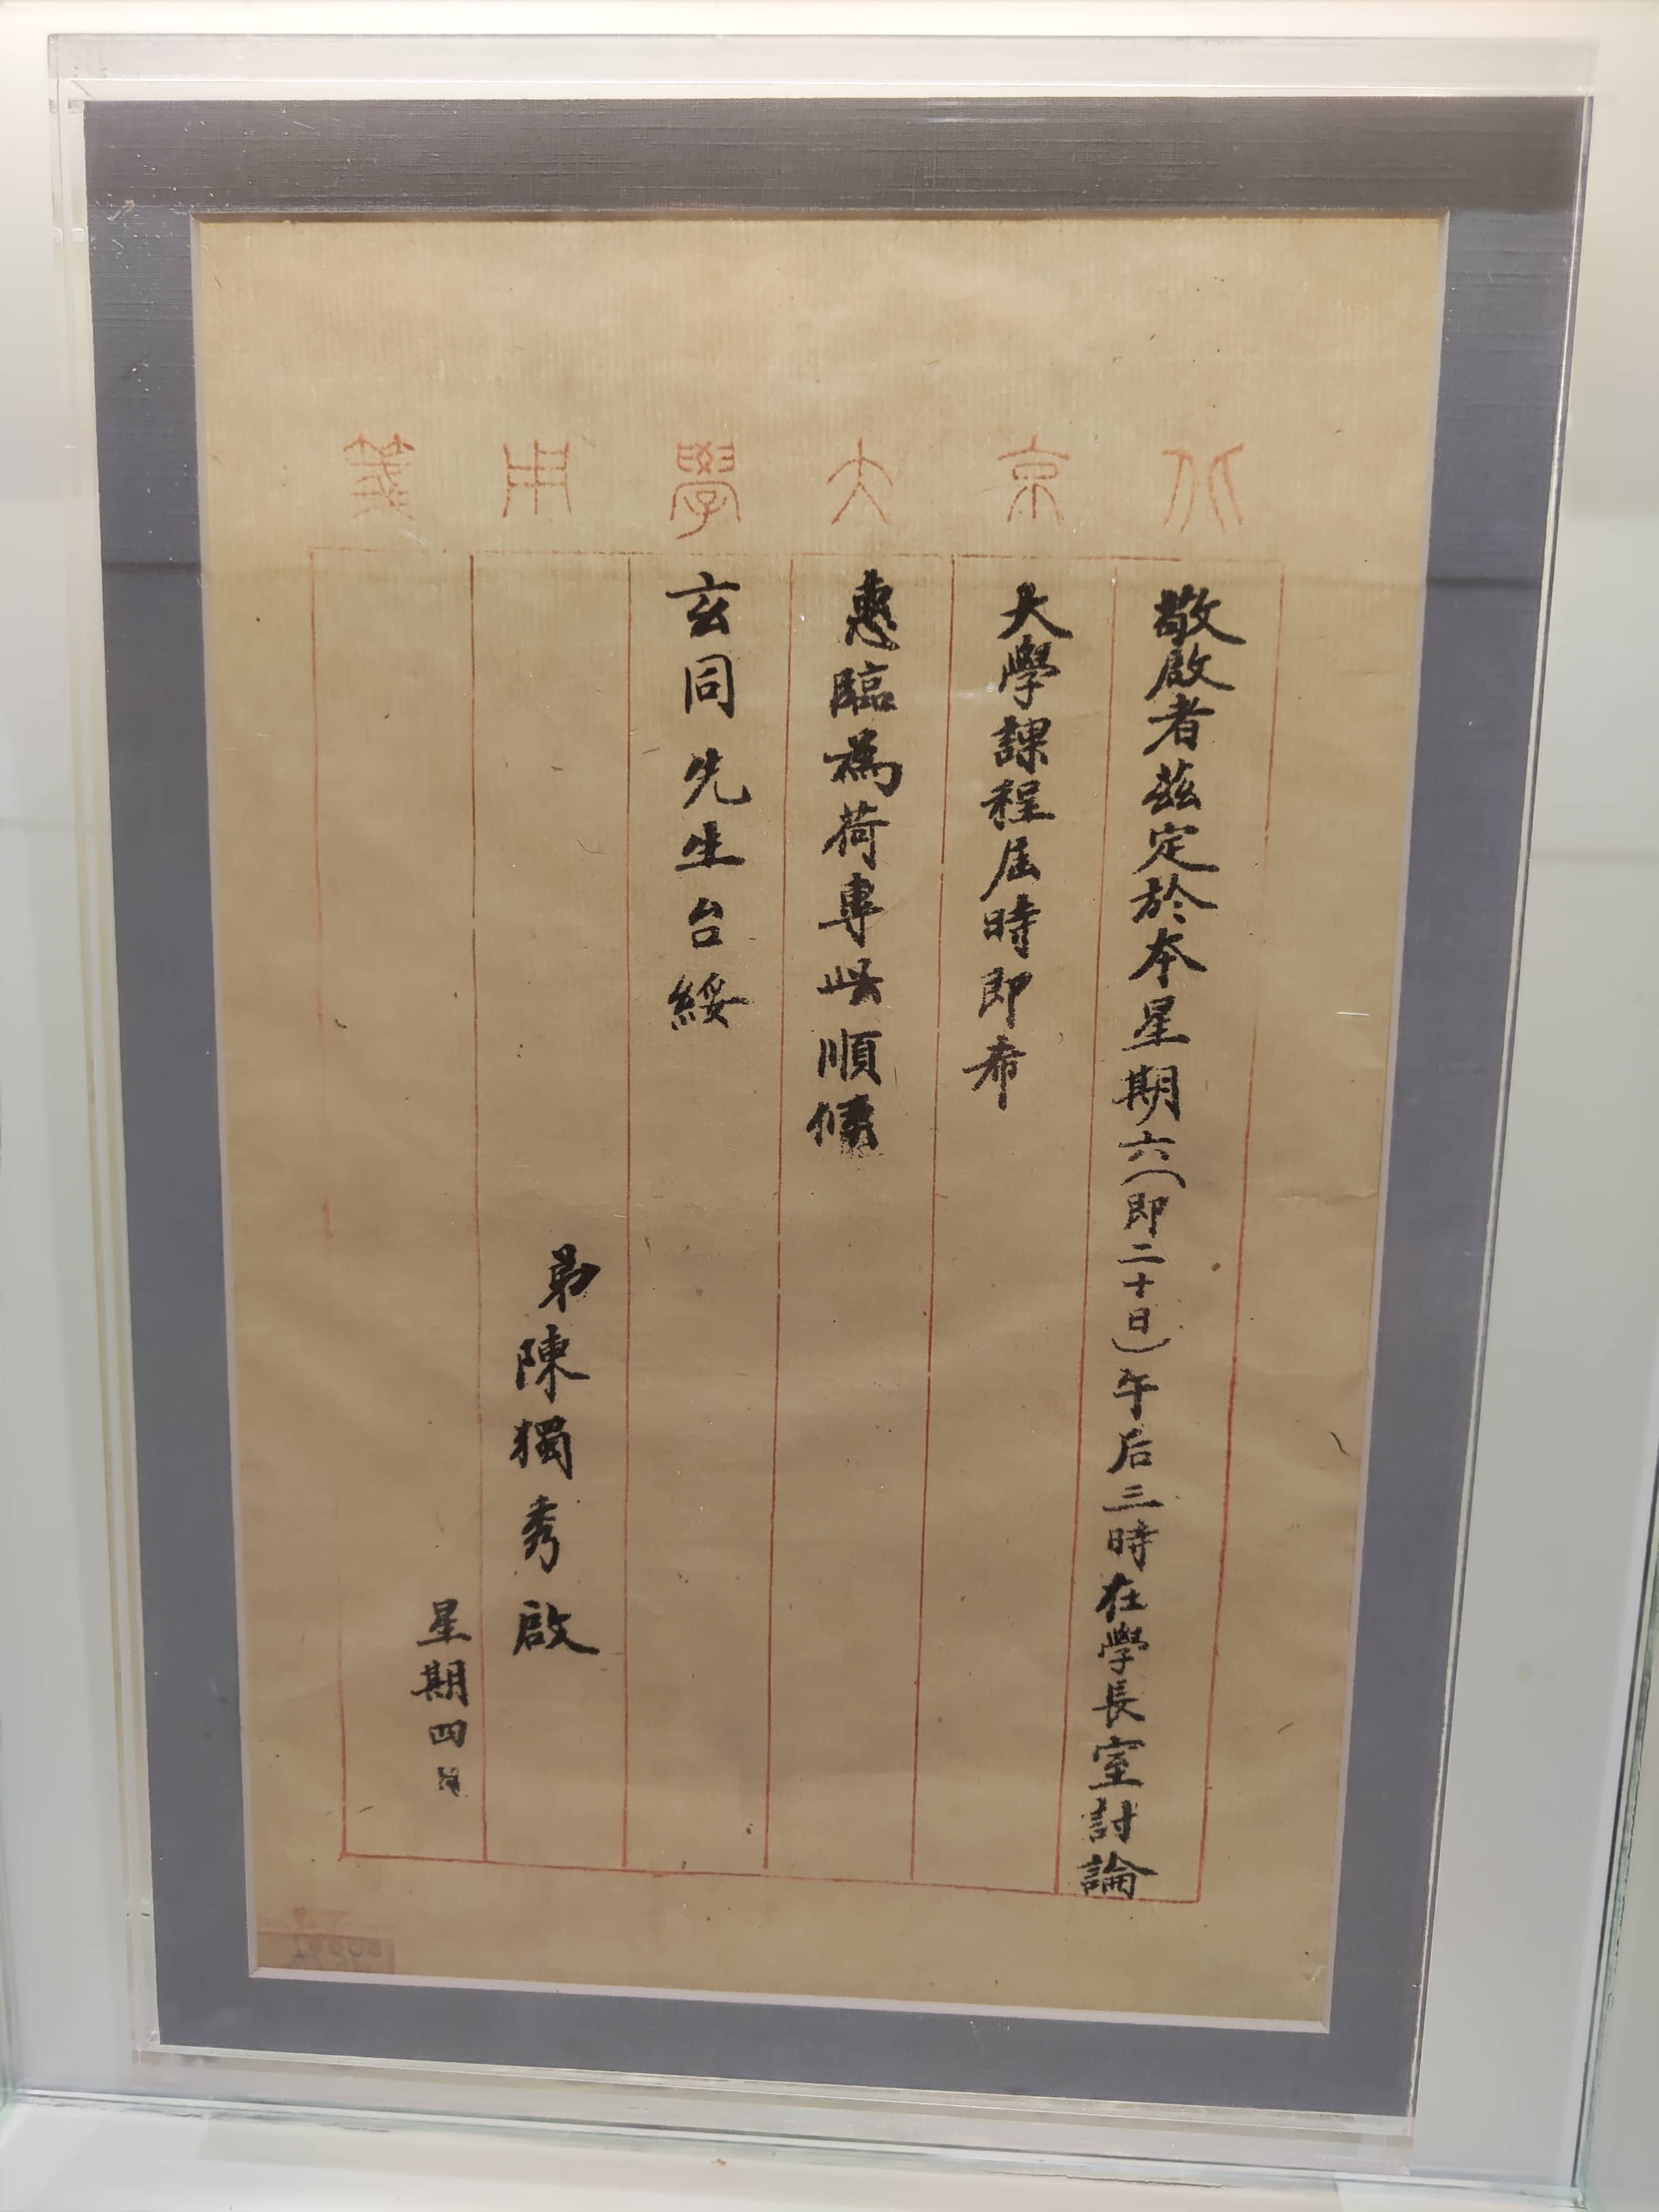 北京大學用箋
敬啟者茲定於本星期六（即二十日）午后三時在學長室討論
大學課程屆時即希
惠臨為荷專此順候
玄同先生台綏
弟陳獨秀啟
星期四